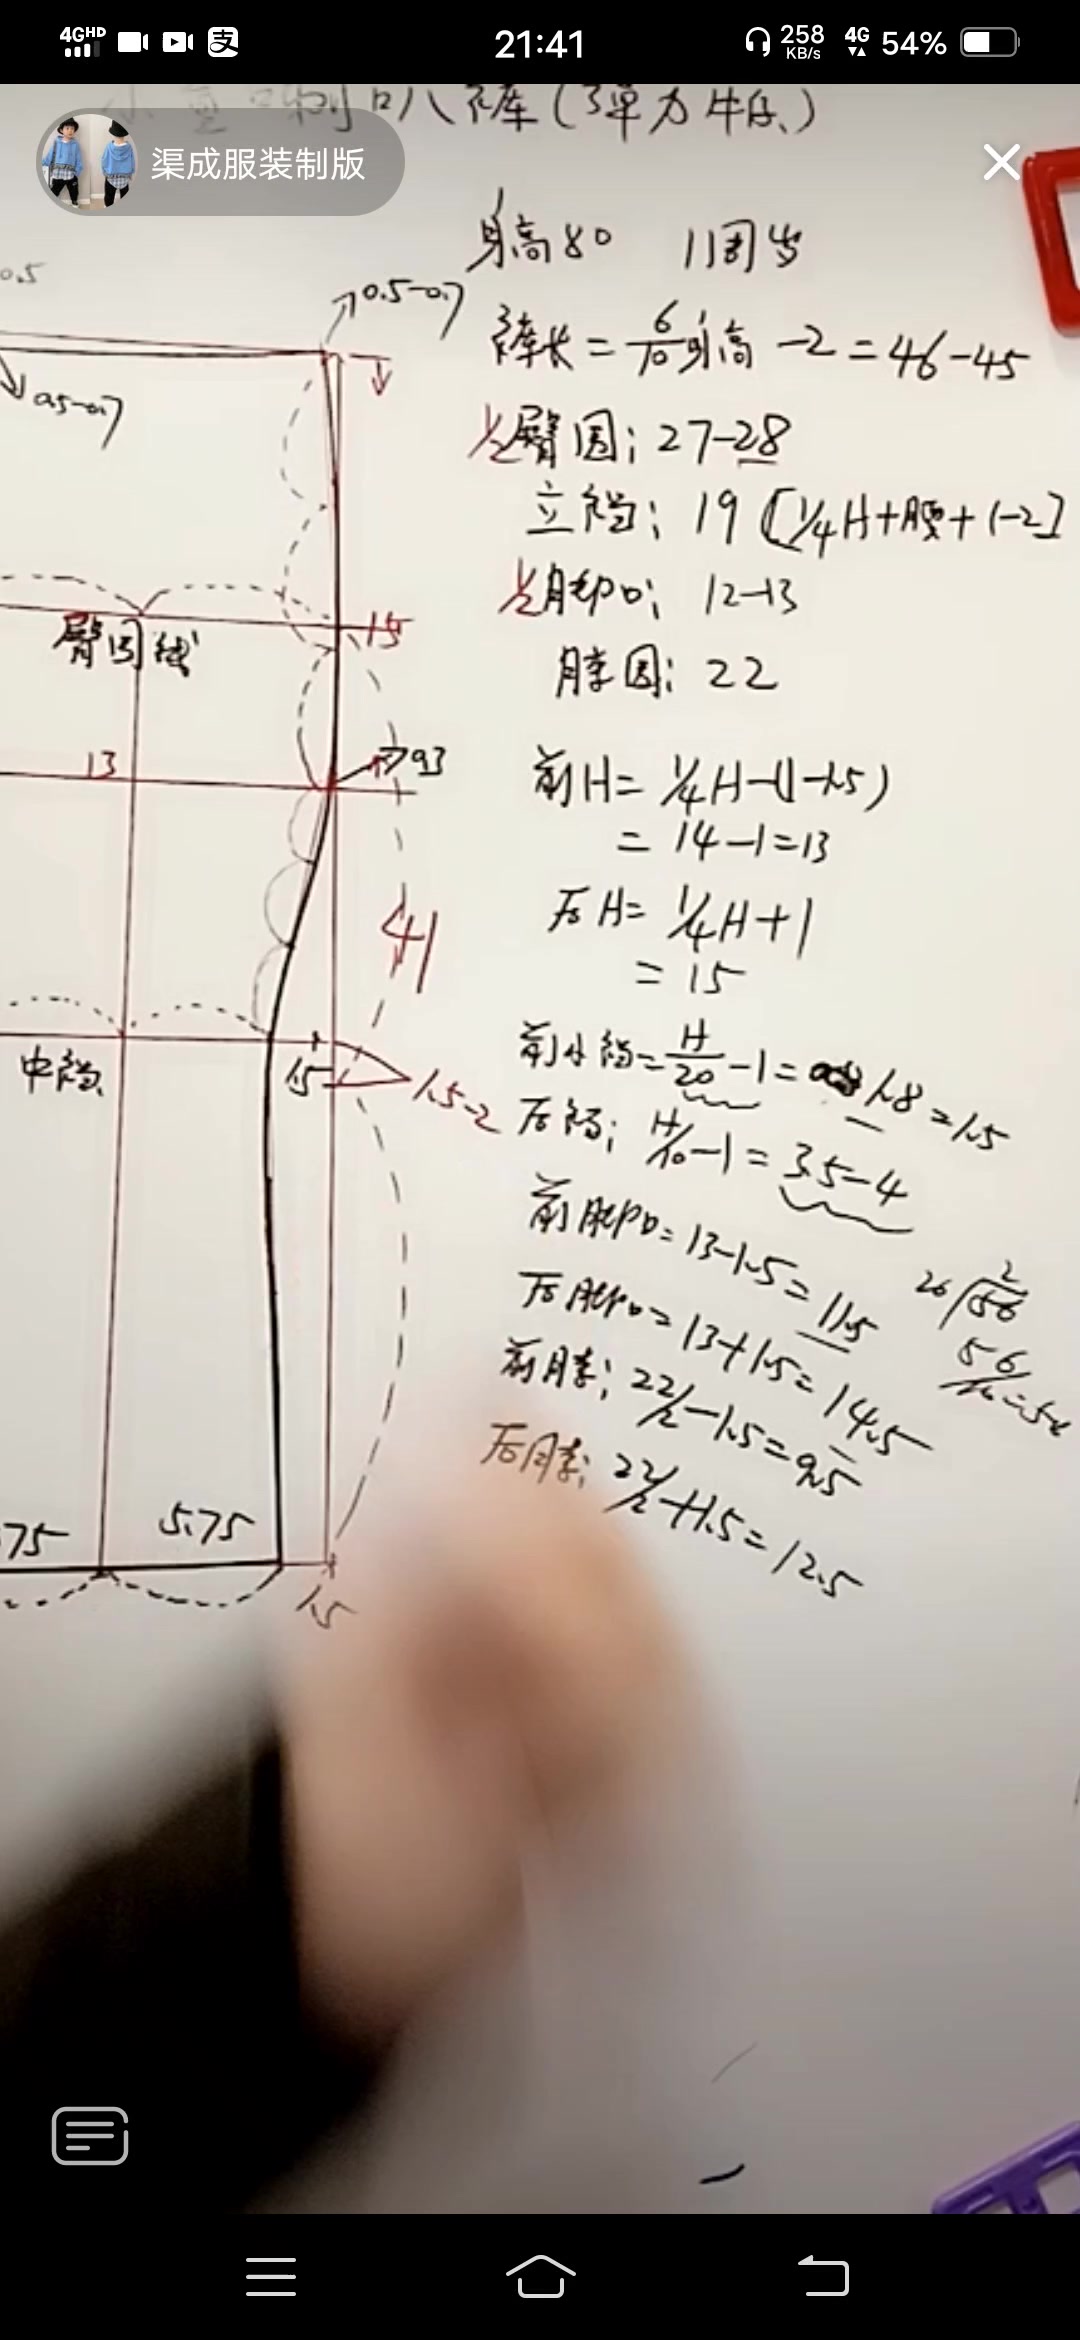 4GHD
21:41
258 KB/s
4G
54%
喇叭裤(弹力牛仔)
渠成服装制版
身高80 1周岁
0.5
0.5-0.7
裤长=6/10身高-2=46-45
0.5-0.7
1/2臀围: 27-28
立裆: 19 [1/4H+腰+1-2]
1/2脚口: 12-13
臀围线
15
膝围: 22
13
0.3
前H=1/4H-(1-1.5)
=14-1=13
后H=1/4H+1
=15
41
前小裆=H/20-1=1.8=1.5
中裆
1.5
1.5-2
后裆: H/10-1=3.5-4
前脚口=13-1.5=11.5
后脚口=13+1.5=14.5
26
2
56
56
前膝: 22/2-1.5=9.5
后膝: 22/2+1.5=12.5
75
5.75
1.5